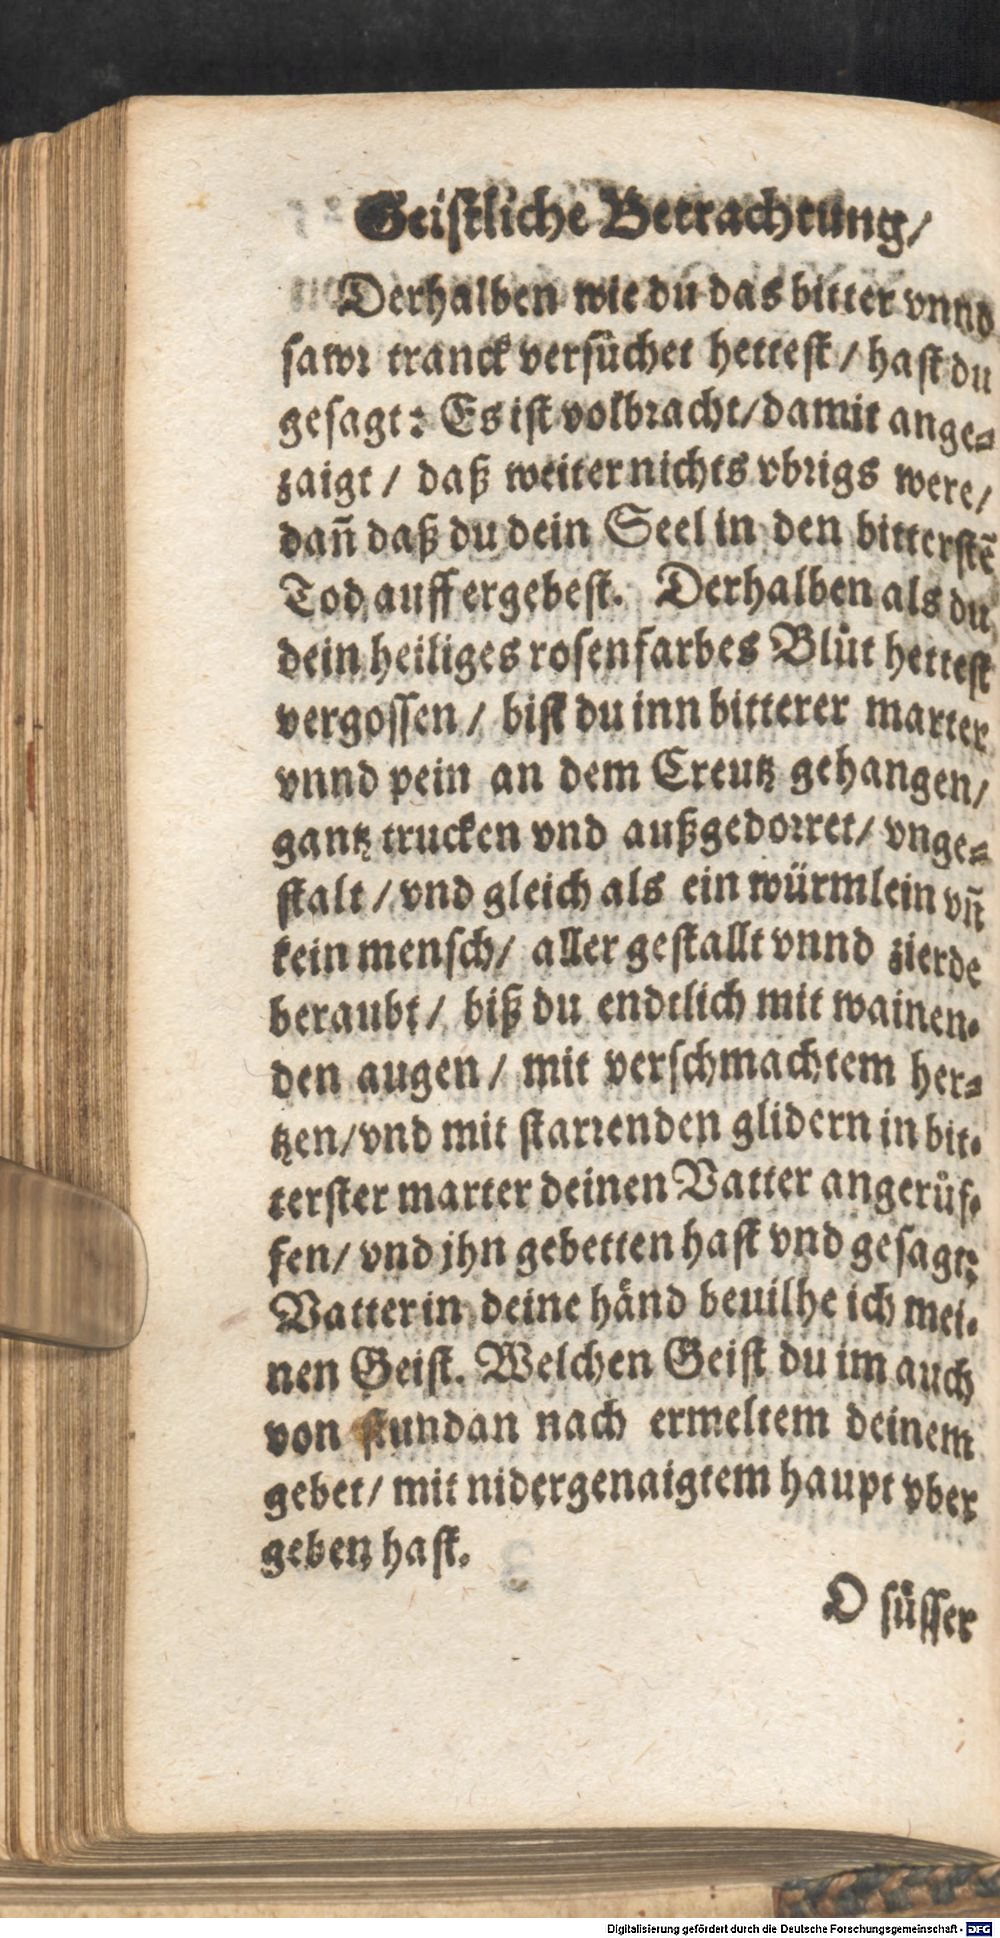 Geistliche Betrachtung/
Derhalben wie du das bitter vnnd
sawr tranck versůchet hettest / hast du
gesagt: Es ist volbracht/damit ange-
zaigt / daß weiter nichts vbrigs were/
dañ daß du dein Seel in den bitterstẽ
Tod auff ergebest. Derhalben als du
dein heiliges rosenfarbes Blůt hettest
vergossen / bist du inn bitterer marter
vnnd pein an dem Creutz gehangen/
gantz trucken vnd außgedorret/ vnge-
stalt / vnd gleich als ein würmlein vñ
kein mensch/ aller gestallt vnnd zierde
beraubt / biß du endtlich mit wainen-
den augen / mit verschmachtem her-
tzen/vnd mit starrenden glidern in bit-
terster marter deinen Vatter angerůf-
fen/ vnd jhn gebetten hast vnd gesagt:
Vatter in deine händ beuilhe ich mei-
nen Geist. Welchen Geist du im auch
von stundan nach ermeltem deinem
gebet/ mit nidergenaigtem haupt vber
geben hast.
O süsser
Digitalisierung gefördert durch die Deutsche Forschungsgemeinschaft - DFG